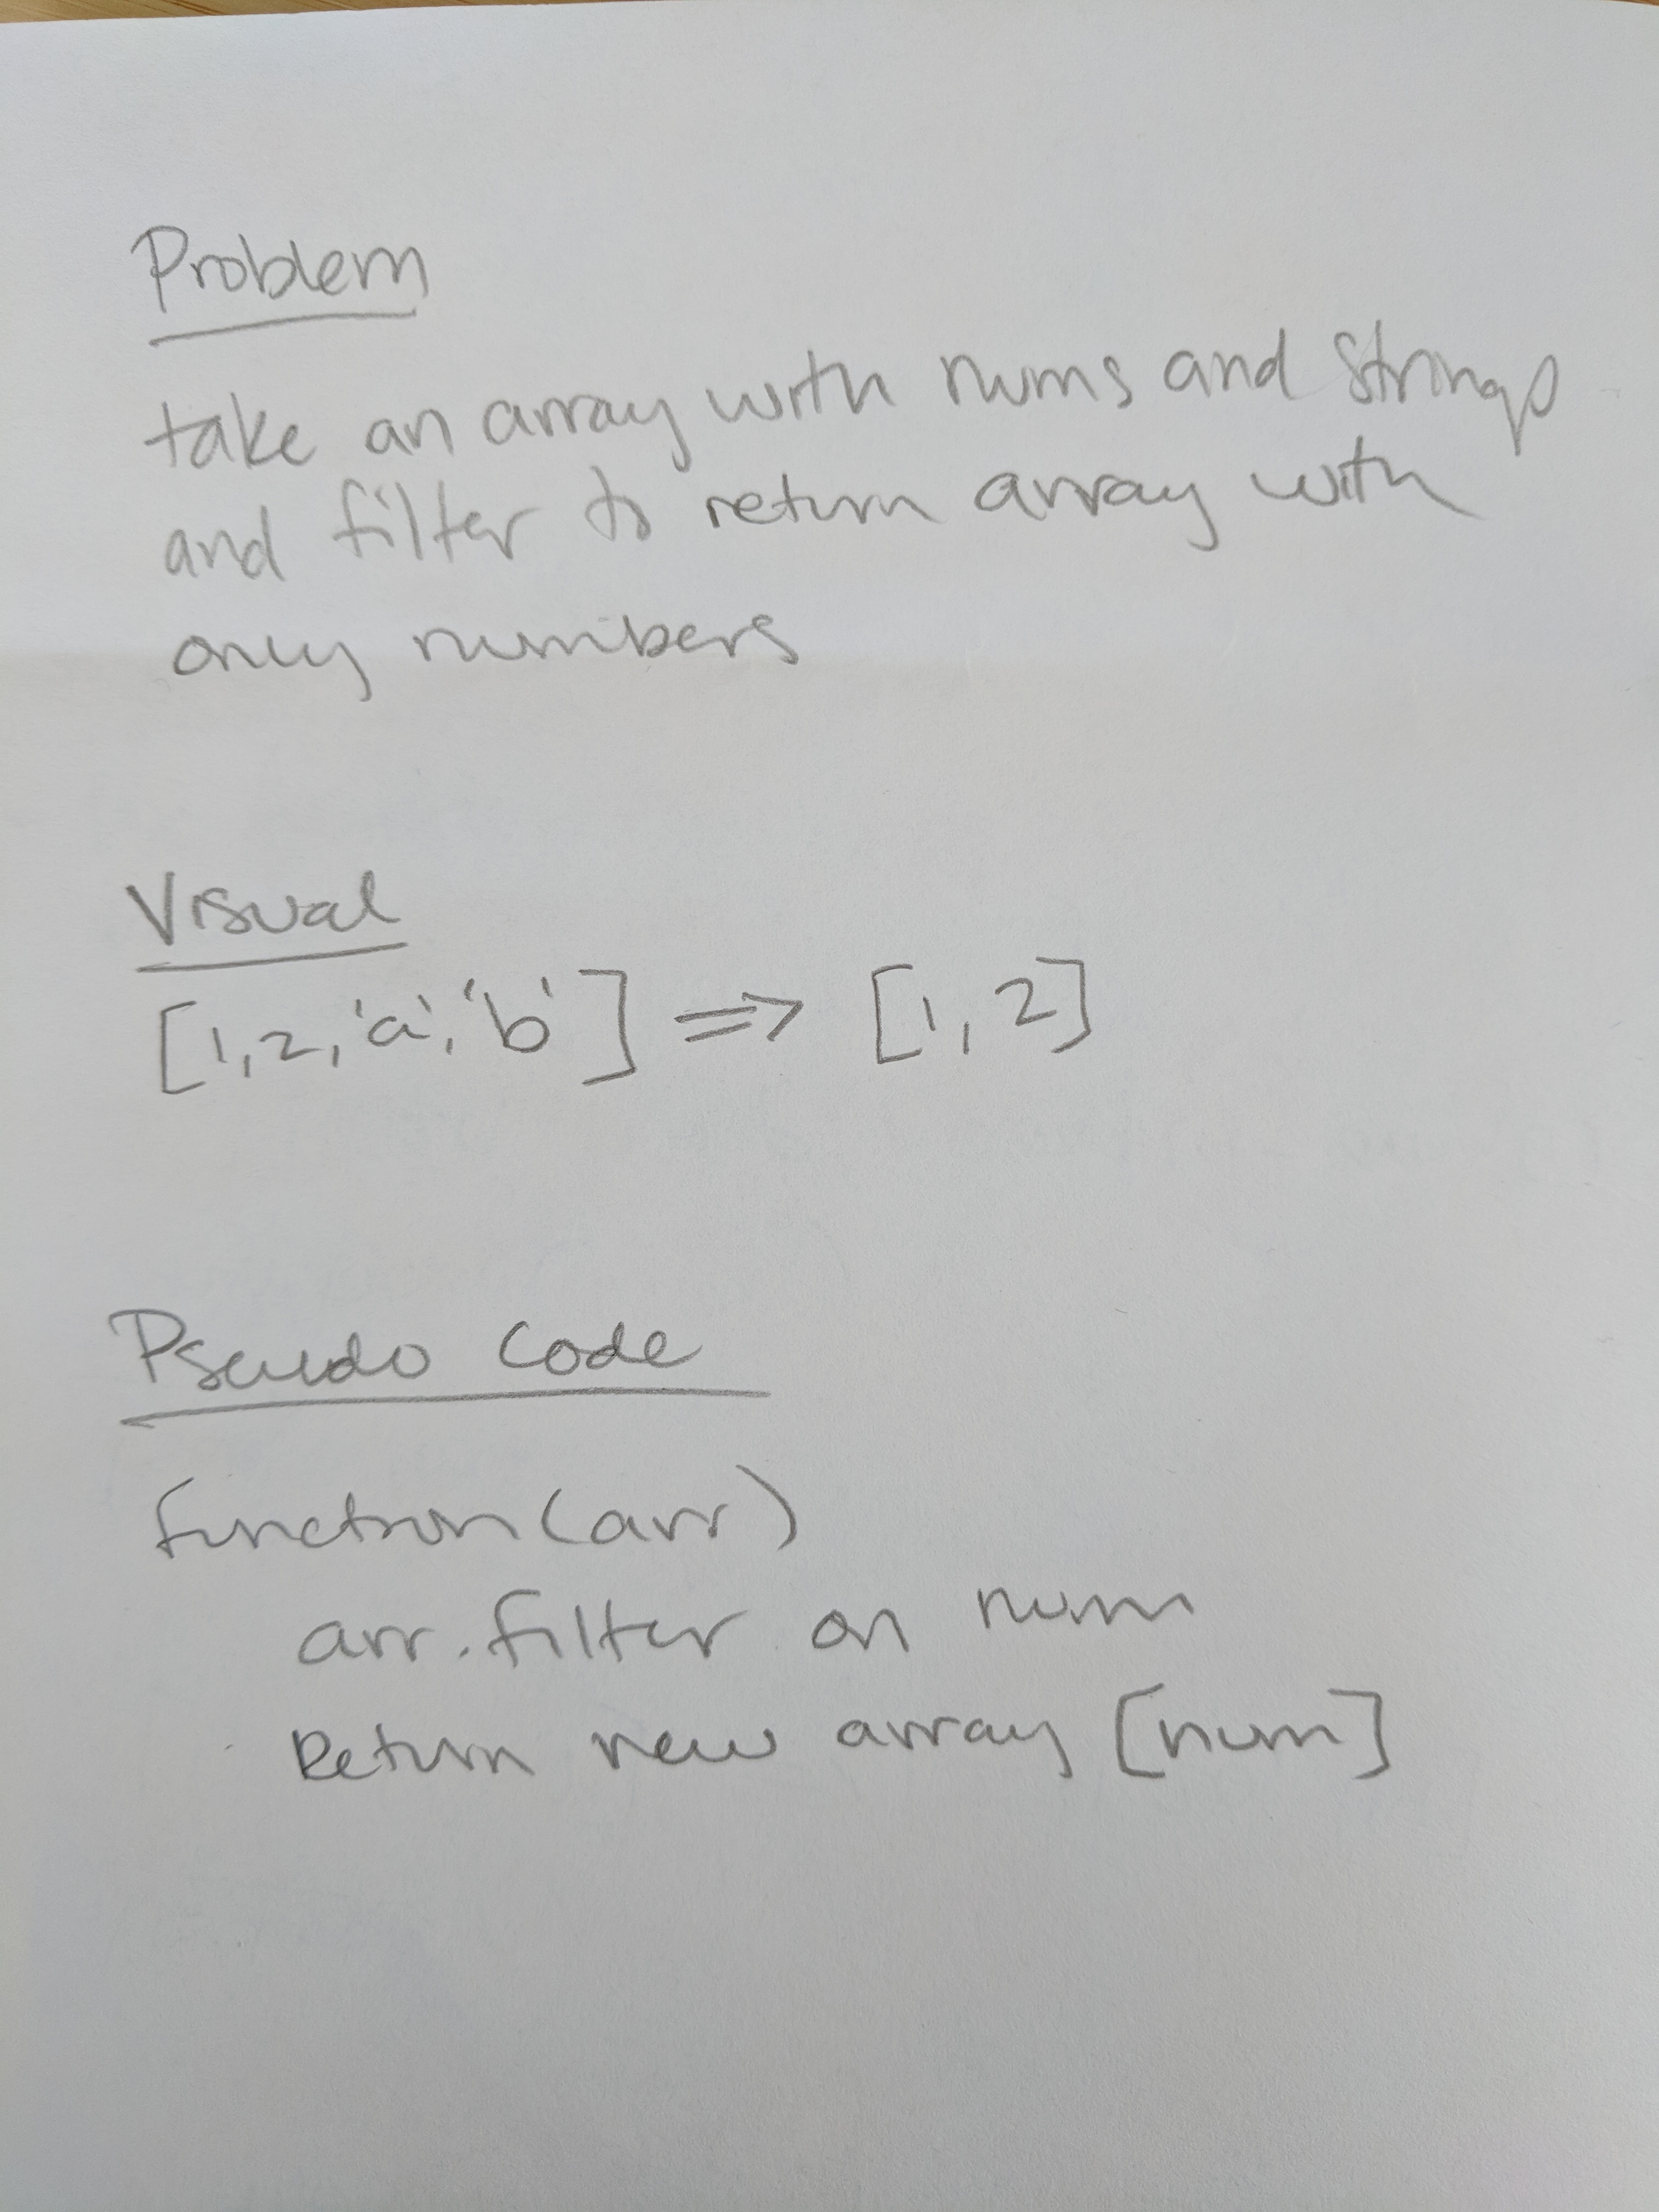 Problem
take an array with nums and strings
and filter to return array with
only numbers
Visual
[1,2,'a','b'] => [1,2]
Pseudo Code
function(arr)
arr.filter on num
Return new array [num]